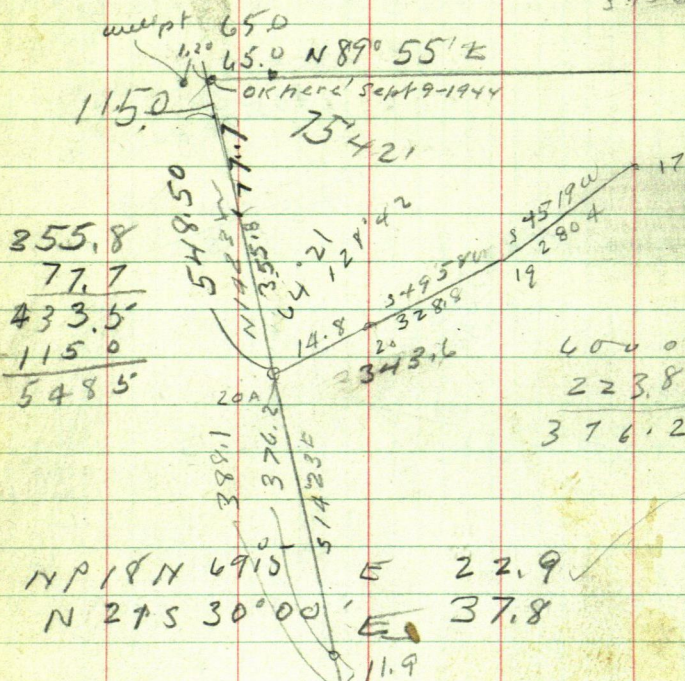 65.0
45.0 N 89° 55' E
ok here Sept 9-1944
115.0
75421
77.7
548.50
355.8
64° 21
128° 42
S 45 19 W
280 4
17
19
S 49 58 W
328.8
14.8
20
343.6
20A
355.8
77.7
433.5
115 0
548 5
600 0
223.8
376.2
388.1
376.2
S 14 23 E
NP 18 N 69 15 E 22.9
N 2 + S 30° 00' E 37.8
11.9